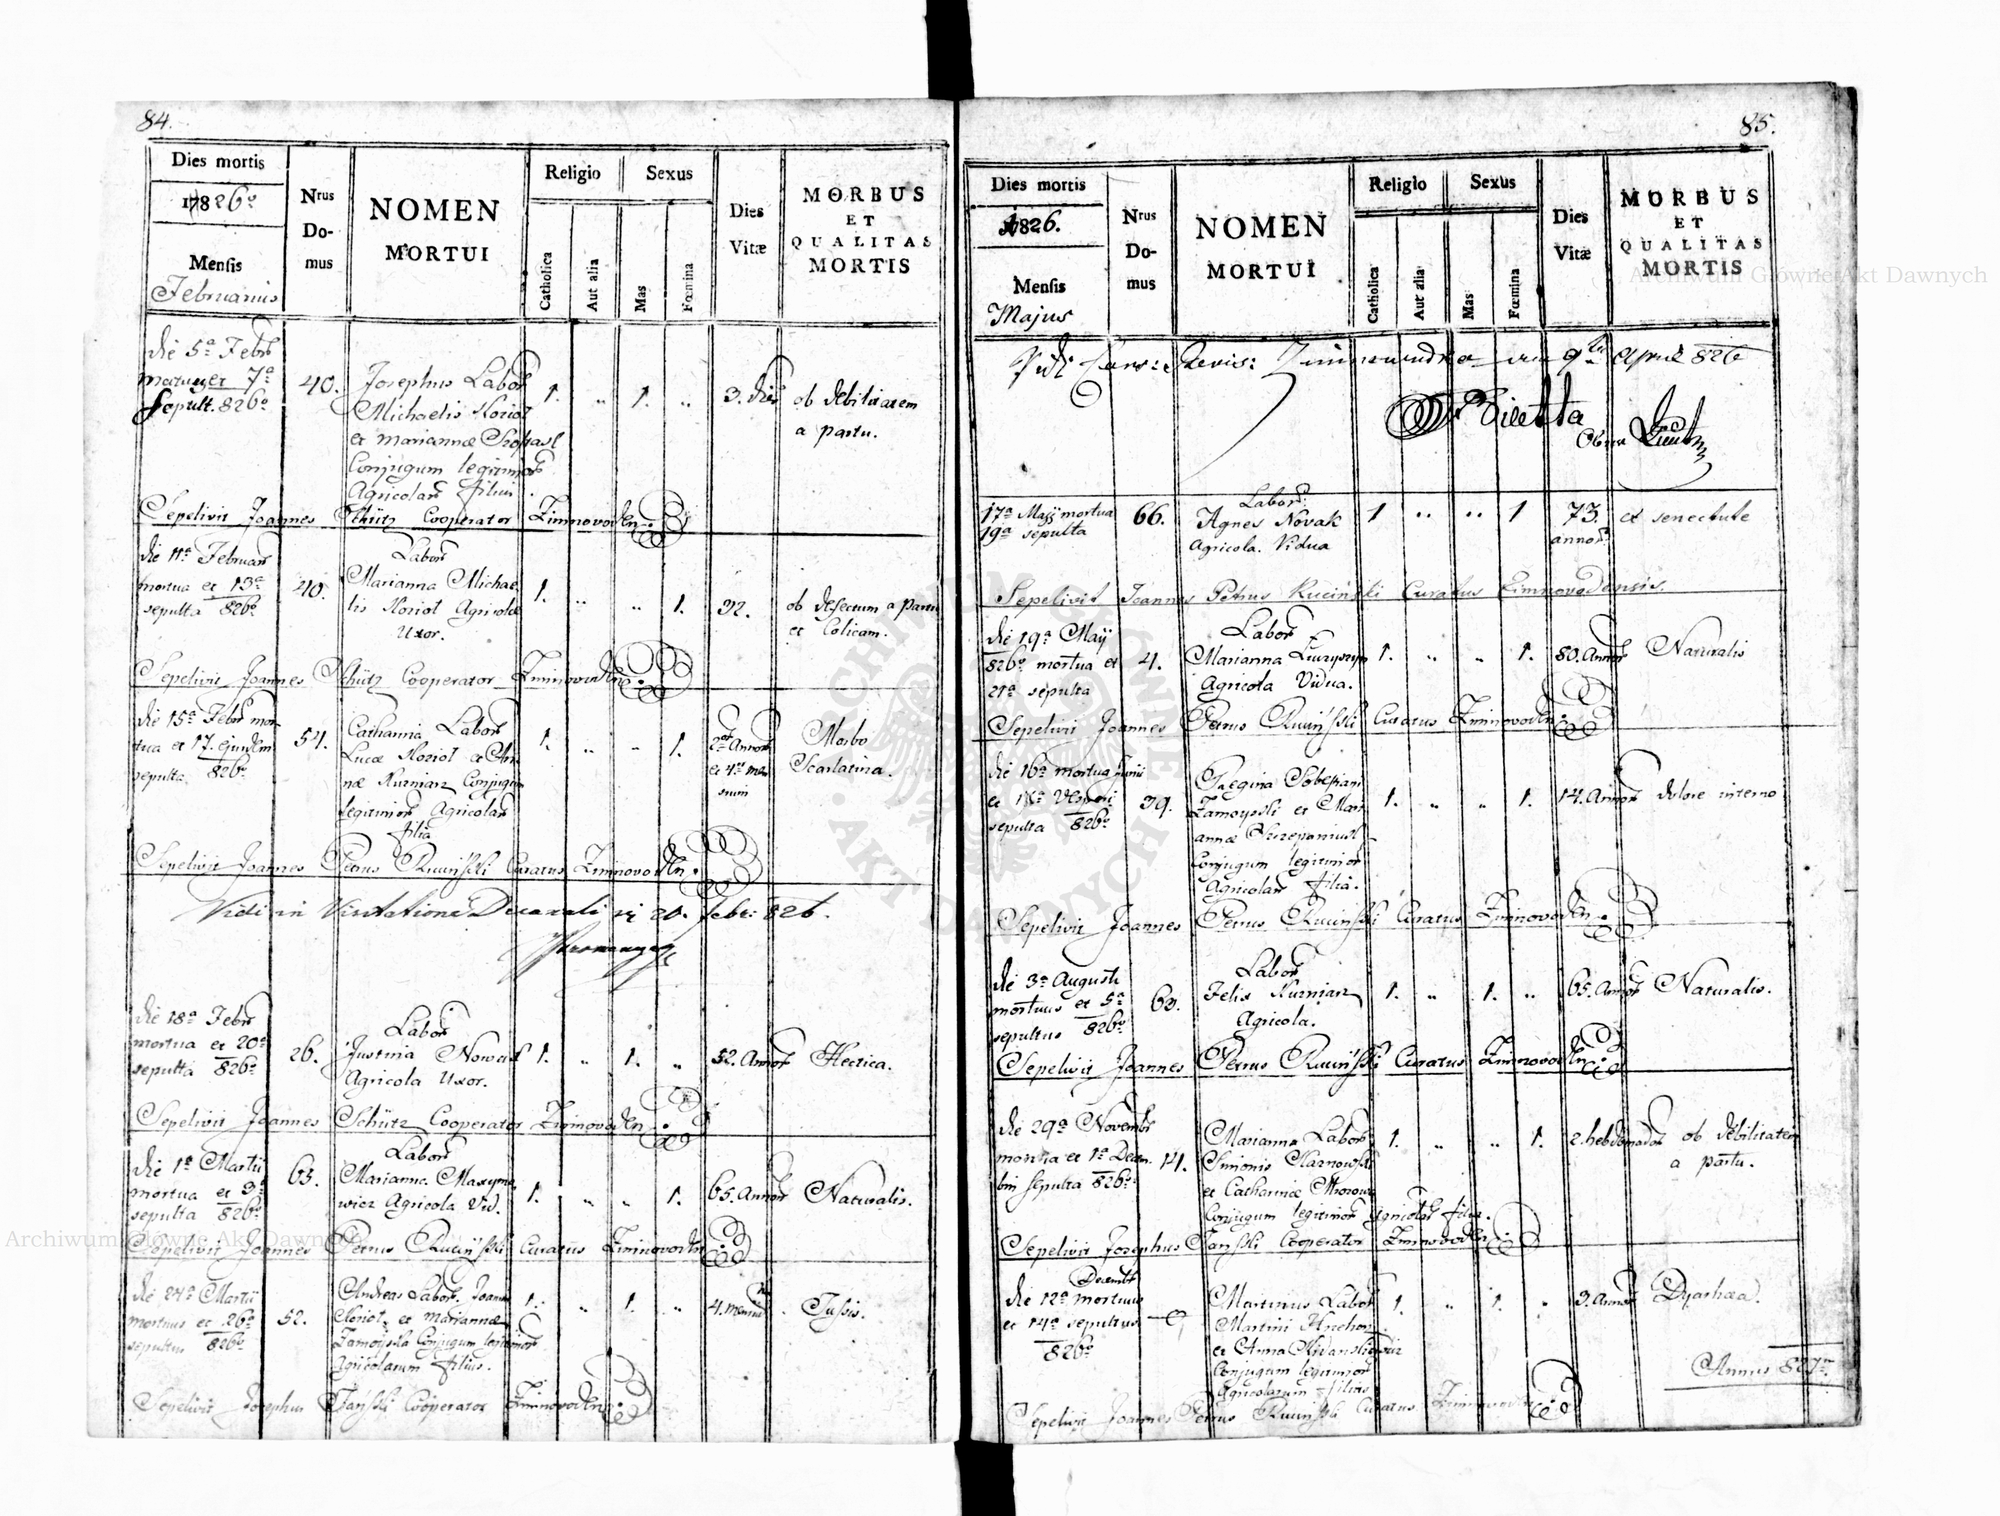 84.
Dies mortis
17826º
Mensis
Februarius
Nrus
Do-
mus
NOMEN
MORTUI
Religio
Catholica
Aut alia
Sexus
Mas
Fœmina
Dies
Vitæ
MORBUS
ET
QUALITAS
MORTIS
die 5ª Febr
et 7ª
sepult. 826º
40.
Josephus Labor
Michaelis Koziol
et Mariannæ
Conjugum legitimor
Agricolar filius
1. " 1. "
3. die
ob debilitatem
a partu.
Sepelivit Joannes Schütz Cooperator Zimnovoden.
die 11ª Februar
mortua et 13ª
sepulta 826º
40.
Labor
Marianna Michae
lis Koziol Agricolæ
Uxor.
1. " " 1.
32.
ob defectum a partu
et Colicam.
Sepelivit Joannes Schütz Cooperator Zimnovoden.
die 15ª Febr mor
tua et 17. ejusdem
sepulta 826º
54.
Catharina Labor
Lucæ Koziol et An
næ Kuzniar Conjugum
legitimor Agricolar
filia
1. " " 1.
2 Annor
et 4 men
sium
Morbo
Scarlatina.
Sepelivit Joannes Petrus Ruciński Curatus Zimnovoden.
Vidi in Visitatione Decanali die 20. Febr: 826.
die 18ª Febr
mortua et 20ª
sepulta 826º
26.
Labor
Justina Nowak
Agricola Uxor.
1. " 1. "
52. Annor
Hectica.
Sepelivit Joannes Schütz Cooperator Zimnovoden.
die 1ª Martii
mortua et 3ª
sepulta 826º
63.
Labor
Marianna Maxymo
wicz Agricola Vid.
1. " " 1.
65. Annor
Naturalis.
Sepelivit Joannes Petrus Ruciński Curatus Zimnovoden.
die 24ª Martii
mortuus et 26ª
sepultus 826º
52.
Andreas Labor. Joannis
Koziol et Mariannæ
Zamoyska Conjugum legitimor
Agricolarum filius.
1. " 1. "
4. mensium
Tussis.
Sepelivit Josephus Jański Cooperator Zimnovoden.
85.
Dies mortis
1826.
Mensis
Majus
Nrus
Do-
mus
NOMEN
MORTUI
Religio
Catholica
Aut alia
Sexus
Mas
Fœmina
Dies
Vitæ
MORBUS
ET
QUALITAS
MORTIS
Vidi Revis: Zimnawudka am 9 April 826
17ª Maji mortua
19ª sepulta
66.
Labor:
Agnes Novak
Agricola. Vidua
1 " " 1
73.
annor
ex senectute
Sepelivit Joannes Petrus Ruciński Curatus Zimnovodensis.
die 19ª Maij
826º mortua et
21ª sepulta
4.
Labor
Marianna
Agricola Vidua.
1. " " 1.
80. Annor
Naturalis
Sepelivit Joannes Petrus Ruciński Curatus Zimnovoden.
die 16ª mortua Junii
et
sepulta 826º
39.
Regina Sebastiani
Zamoyski et Mari
annæ Szczepaniuk
Conjugum legitimor
Agricolar filia.
1. " " 1.
14. Annor
dolore interno
Sepelivit Joannes Petrus Ruciński Curatus Zimnovoden.
die 3ª Augusti
mortuus et 5ª
sepultus 826º
63.
Labor
Felix Kuzniar
Agricola.
1. " 1. "
65. Annor
Naturalis.
Sepelivit Joannes Petrus Ruciński Curatus Zimnovoden.
die 29ª Novembr
mortua et 1ª Decem
bris sepulta 826º
14.
Marianna Labor
Simonis Karnowski
et Catharinæ
Conjugum legitimor Agricolar filia.
1. " " 1.
2. hebdomadar
ob debilitatem
a partu.
Sepelivit Josephus Jański Cooperator Zimnovoden.
Decembr
die 12ª mortuus
et 14ª sepultus
826º
Martinus Labor
Martini
et Anna
Conjugum legitimor
Agricolarum filius
1. " 1. "
3. Annor
Dyarhæa.
Annus 827
Sepelivit Joannes Petrus Ruciński Curatus Zimnovoden.
Archiwum Główne Akt Dawnych
Archiwum Główne Akt Dawnych
ARCHIWUM GŁÓWNE
AKT DAWNYCH